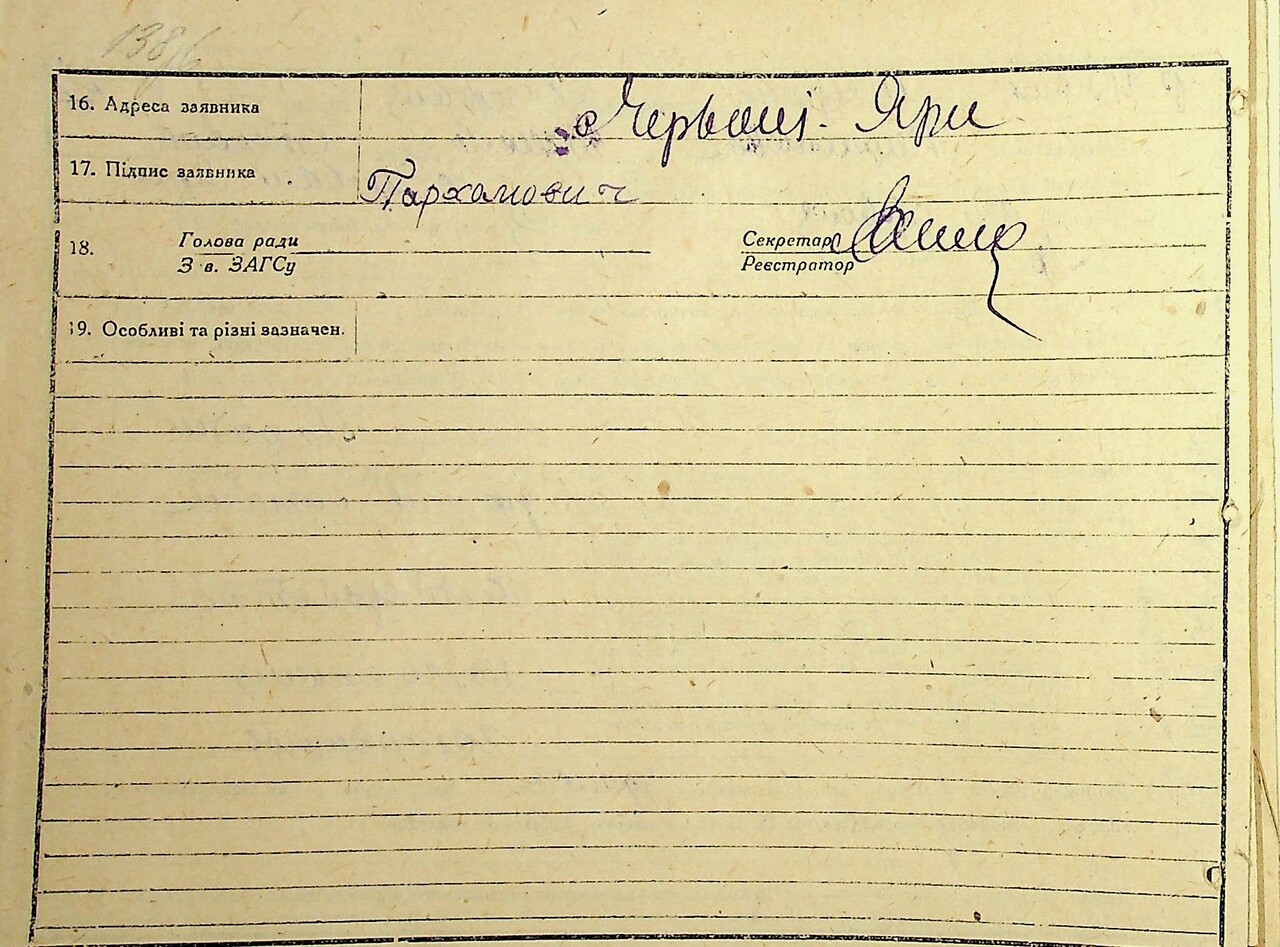 16. Адреса заявника с Червоні-Яри
17. Підпис заявника Парханович
18. Голова ради Секретар
З в. ЗАГСу Реєстратор
19. Особливі та різні зазначен.